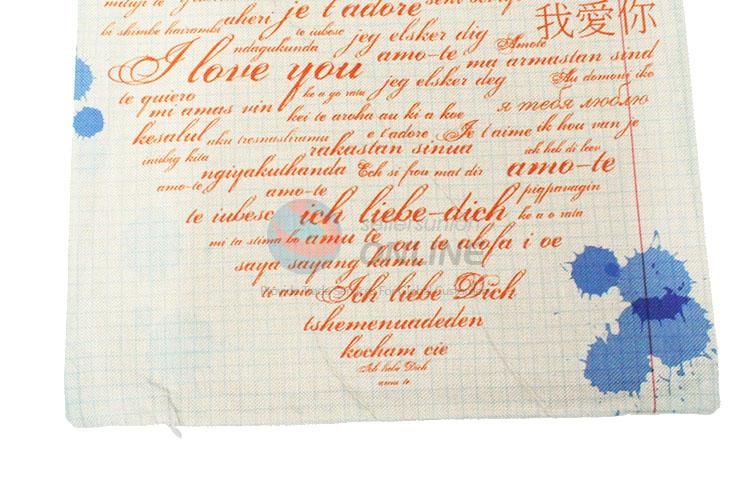 aheri je t'adore
我愛你
bi shimbe hairambi te iubesc jeg elsker dig Amote
ndagukunda amo-te ma armastan sind
I love you jeg elsker deg Au domoni iko
te quiero ke a go rata
mi amas vin kei te aroha au ki a koe я тебя люблю
kesalul aku tresnasliramu e t'adore Je t'aime ik hou van je
inubig kita rakastan sinua ick heb di leev
ngiyakuthanda Ech si frou mat dir amo-te
amo-te amo-te pigpanagin
te iubesc ich liebe-dich ke a o rata
mi ta stima bo amu te ou te alofa i oe
saya sayang kamu
ti amo Ich liebe Dich
tshemenuadeden
kocham cie
Ich liebe Dich
amu te
sellersunion
ONLINE